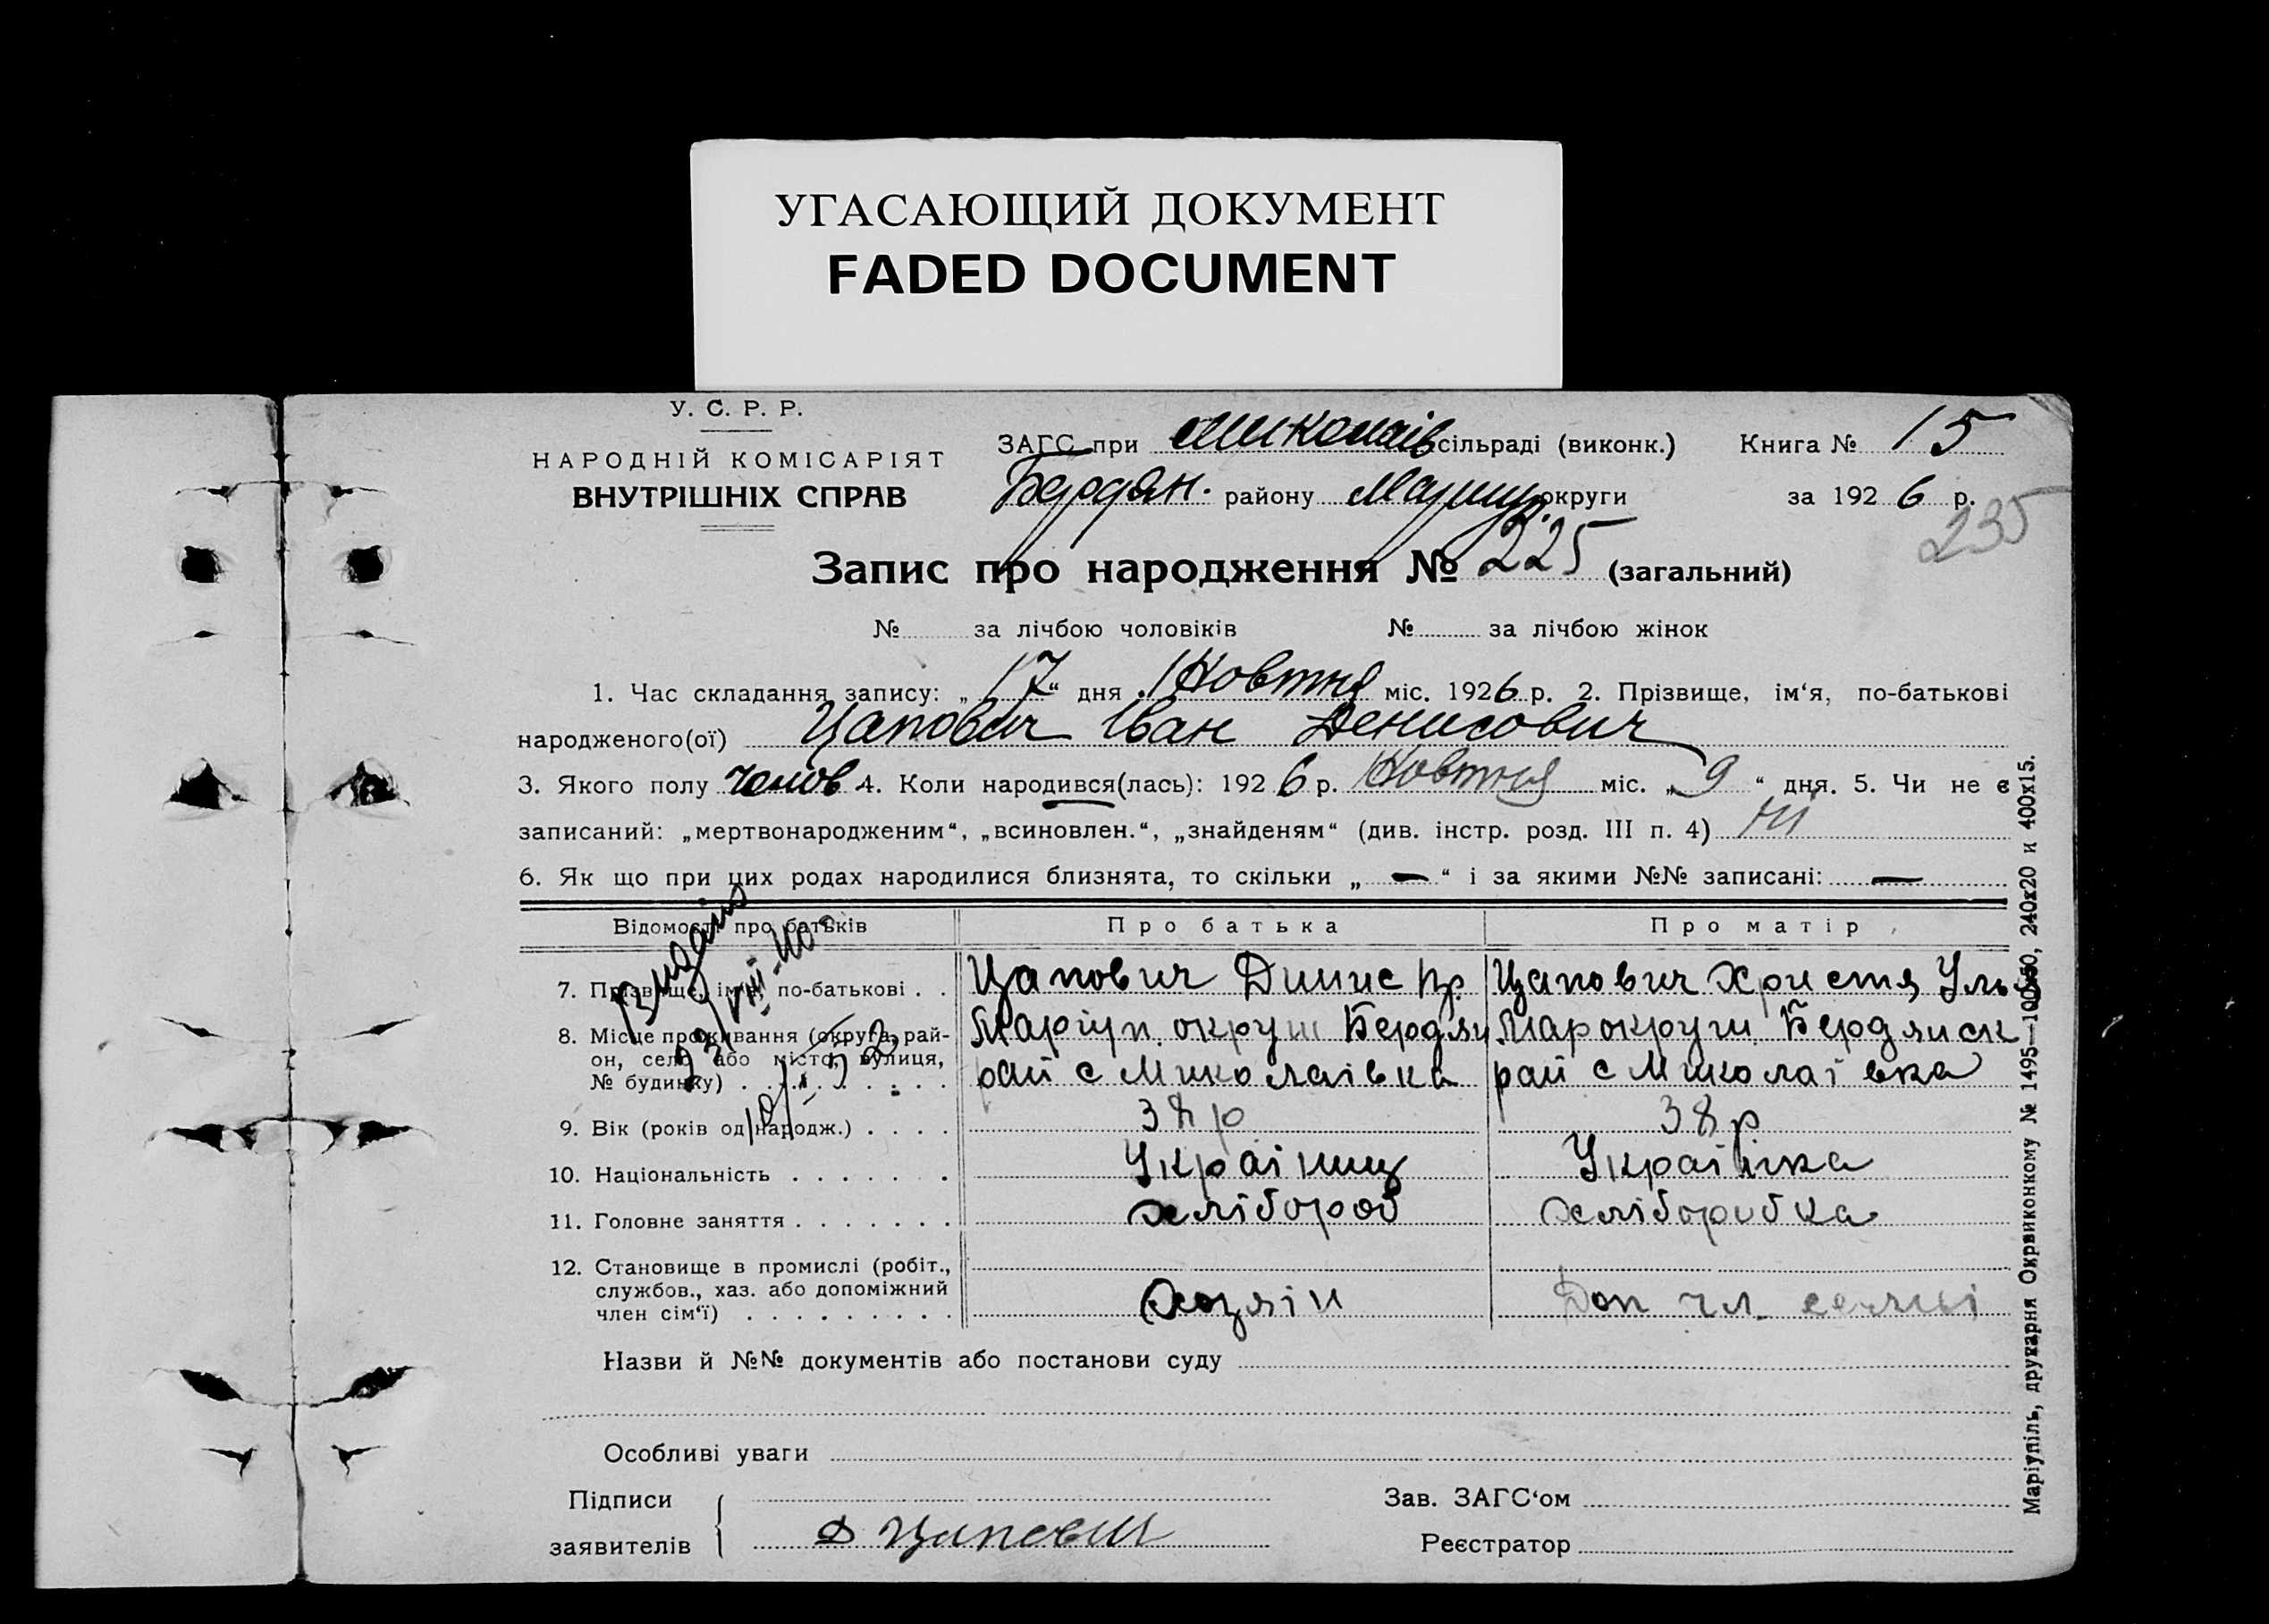 УГАСАЮЩИЙ ДОКУМЕНТ
FADED DOCUMENT
У. С. Р. Р.
НАРОДНІЙ КОМІСАРІЯТ
ВНУТРІШНІХ СПРАВ
ЗАГС при Миколаїв сільраді (виконк.) Книга № 15
Бердян. району Маріуп. округи за 1926 р.
235
Запис про народження № 225 (загальний)
№ за лічбою чоловіків № за лічбою жінок
1. Час складання запису: „17“ дня Жовтня міс. 1926 р. 2. Прізвище, ім‘я, по-батькові
народженого(ої) Цапович Іван Денисович
3. Якого полу чолов 4. Коли народився(лась): 1926 р. Жовтня міс. „9“ дня. 5. Чи не є
записаний: „мертвонародженим“, „всиновлен.“, „знайденям“ (див. інстр. розд. III п. 4) ні
6. Як що при цих родах народилися близнята, то скільки „—“ і за якими №№ записані: —
Відомості про батьків Про батька Про матір
7. Прізвище, ім‘я, по-батькові . . Цапович Динис Пр. Цапович Христя Улья
8. Місце проживання (округа, рай- Маріуп. округи Бердян Мар округи Бердянск
он, село або місто, вулиця,
№ будинку) рай с Миколаівка рай с Миколаівка
9. Вік (років од народж.) . . . . 38 р 38 р
10. Національність . . . . . . . Украіниц Украінка
11. Головне заняття . . . . . . . хлібороб хліборобка
12. Становище в промислі (робіт.,
службов., хаз. або допоміжний
член сім‘ї) . . . . . . . . . хозяін Доп чл семьі
Назви й №№ документів або постанови суду
Особливі уваги
Підписи Зав. ЗАГС‘ом
заявителів Д Цапович Реєстратор
Маріупіль, друкарня Окрвиконкому № 1495—100х50, 240х20 и 400х15.